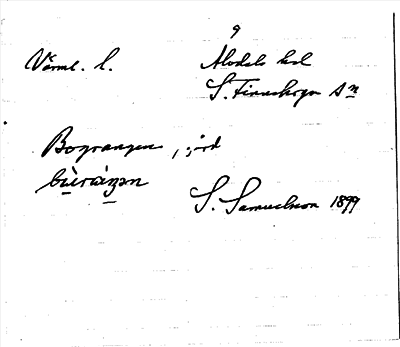 Värml. l.
Älvdals hd
S. Finnskoga sn
Bograngen, gård
bùràŋən
S. Samuelsson 1899